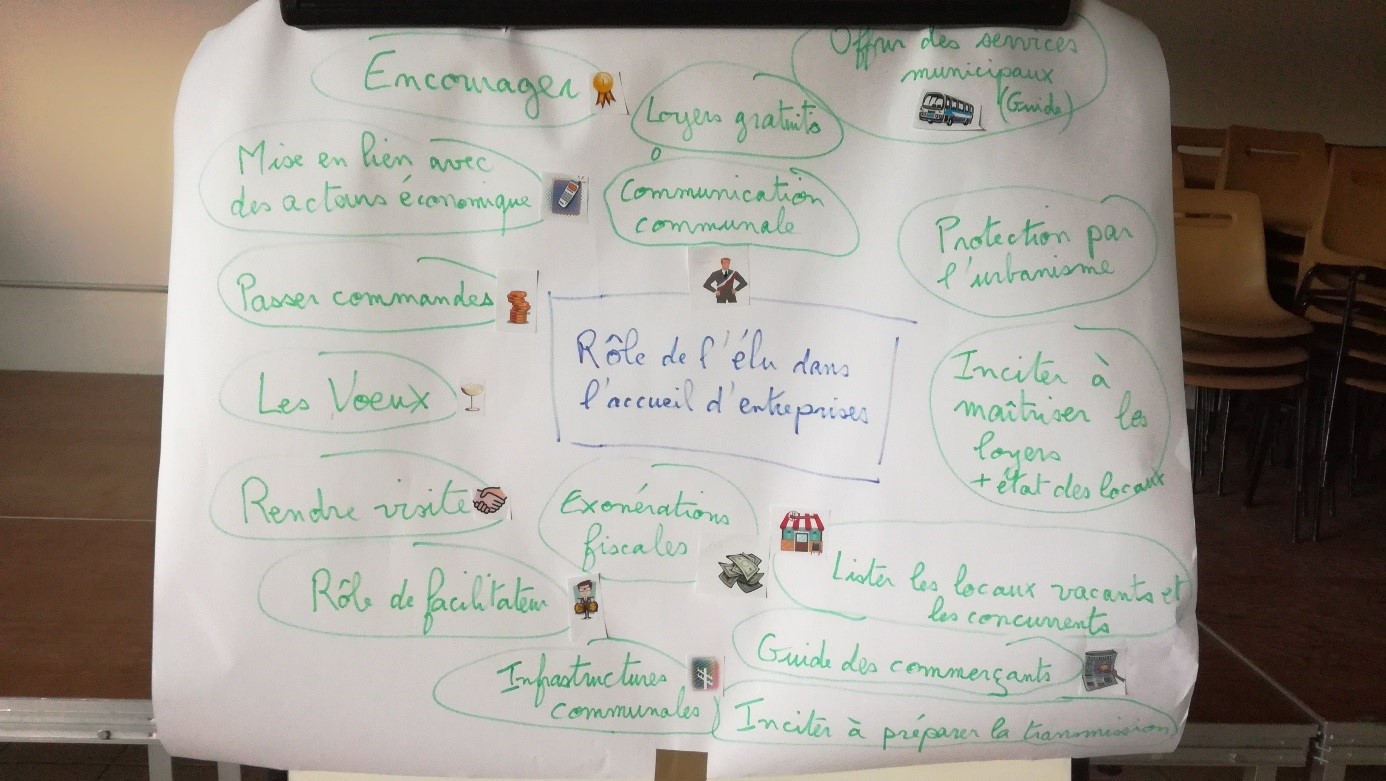 Encourager
Loyers gratuits
Offrir des services
municipaux
(Guide)
Mise en lien avec
des acteurs économique
Communication
communale
Protection par
l'urbanisme
Passer commandes
Rôle de l'élu dans
l'accueil d'entreprises
Inciter à
maîtriser les
loyers
+ état des locaux
Les Voeux
Rendre visite
Exonérations
fiscales
Lister les locaux vacants et
les concurrents
Rôle de facilitateur
Guide des commerçants
Infrastructures
communales
Inciter à préparer la transmission